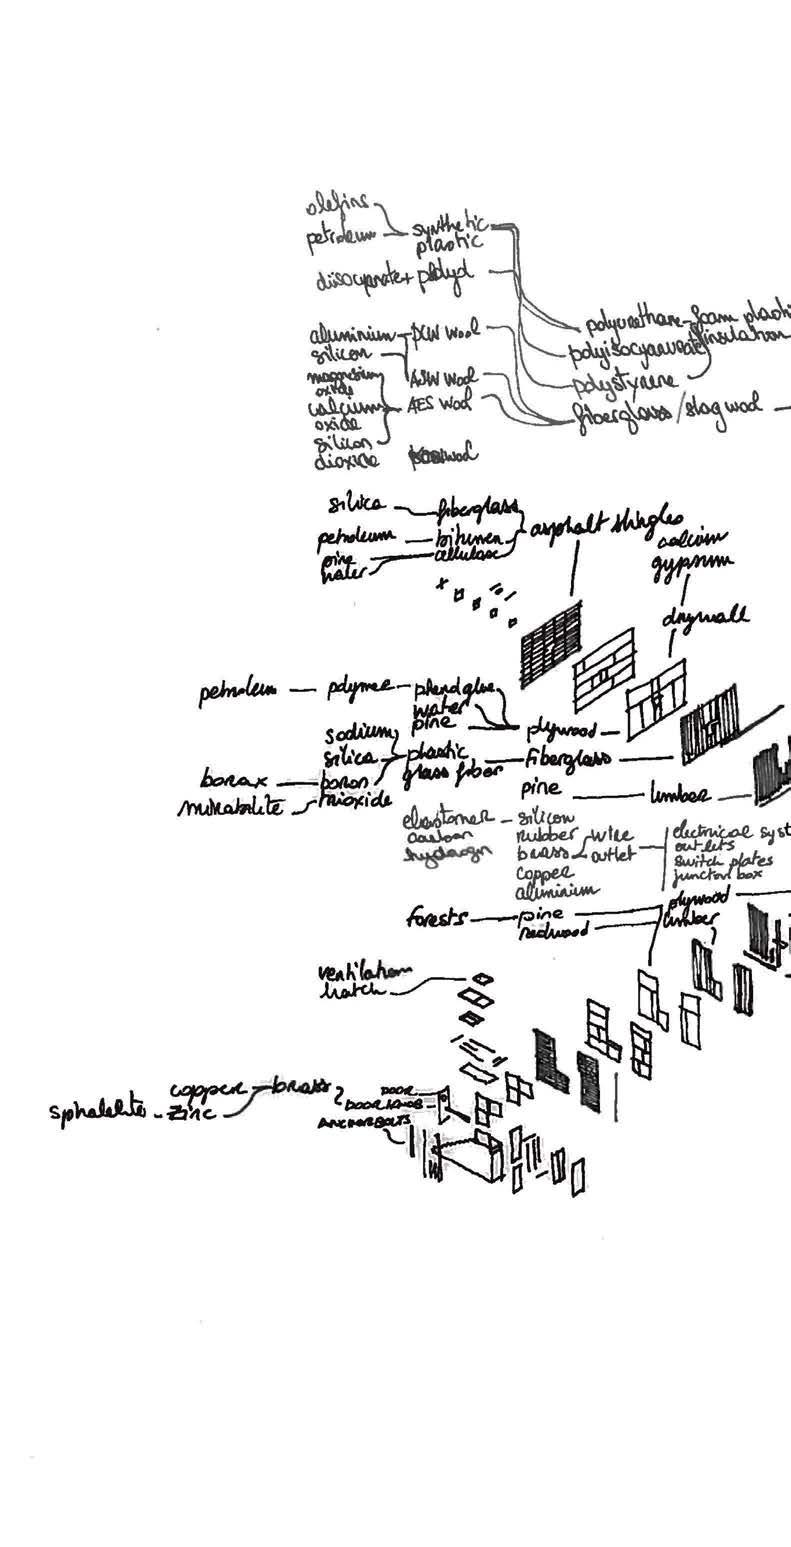 olefins
petroleum
synthetic
plastic
diisocyanate + polyol
polyurethane-foam plasti
insulation
polyisocyanurate
polystyrene
fiberglass/slag wool
aluminium
silicon
PCW wool
magnesium
oxide
ASW wool
calcium
oxide
AES wool
silicon
dioxide
silica
fiberglass
petroleum
bitumen
pine
water
cellulose
asphalt shingles
calcium
gypsum
drywall
petroleum
polymer
phenol glue
water
pine
plywood
sodium
silica
plastic
glass fiber
Fiberglass
borax
boron
trioxide
mirabilite
pine
lumber
elastomer
carbon
hydrogen
silicon
rubber
brass
copper
aluminium
wire
outlet
electrical syst
outlets
switch plates
junction box
forests
pine
redwood
plywood
lumber
ventilation
hatch
sphalelite
copper
zinc
brass
DOOR
DOOR KNOB
ANCHOR BOLTS